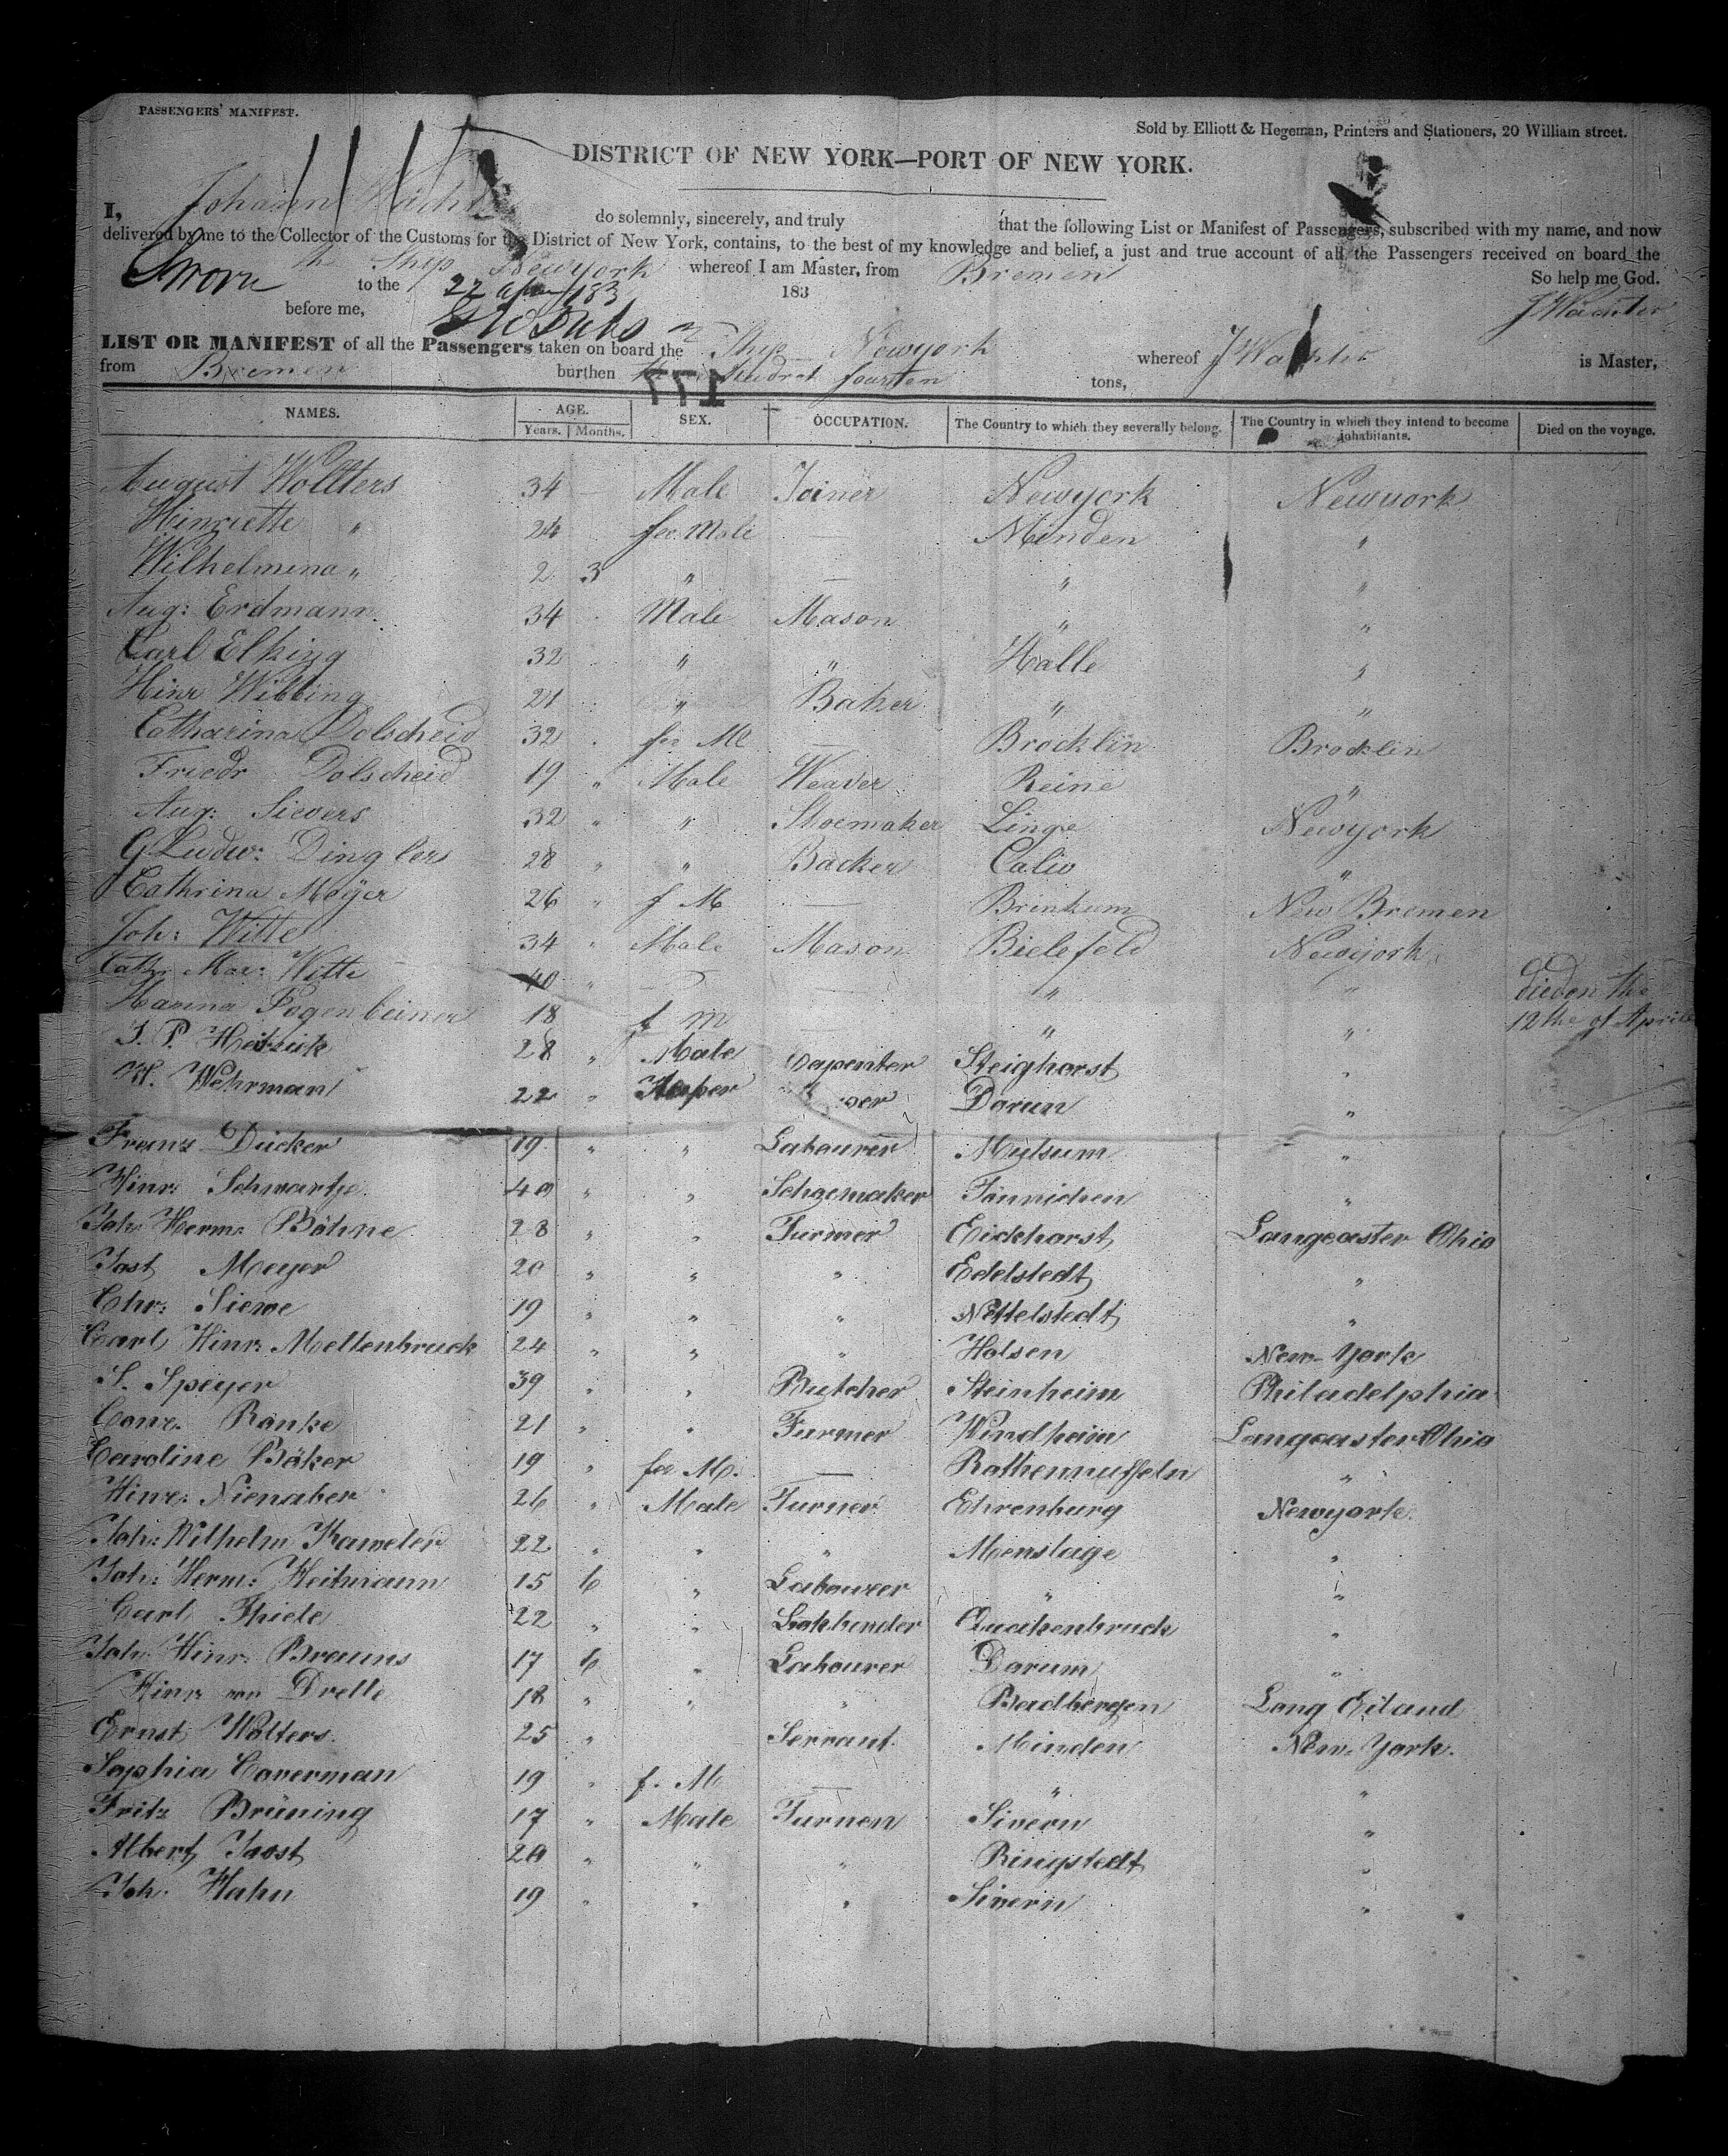 PASSENGERS' MANIFEST.
Sold by Elliott & Hegeman, Printers and Stationers, 20 William street.
DISTRICT OF NEW YORK—PORT OF NEW YORK.
I, Johann do solemnly, sincerely, and truly that the following List or Manifest of Passengers, subscribed with my name, and now
delivered by me to the Collector of the Customs for the District of New York, contains, to the best of my knowledge and belief, a just and true account of all the Passengers received on board the
the Ship Newyork whereof I am Master, from Bremen So help me God.
Sworn to the 27 183 183
before me, J Wächter
LIST OR MANIFEST of all the Passengers taken on board the Ship Newyork whereof J Wachter is Master,
from Bremen burthen hundret fourten tons,
NAMES. AGE. SEX. OCCUPATION. The Country to which they severally belong. The Country in which they intend to become inhabitants. Died on the voyage.
Years. Months.
August Woltters 34 — Male Joiner Newyork Newyork
Henriette " 24 fee Male — Minden "
Wilhelmina " 2 3 " — " "
Aug: Erdmann 34 Male Mason " "
Carl Elking 32 " " Halle "
Hinr Wibbing 21 " Baker " "
Catharina Dolscheid 32 fee Ml — Brocklin Brocklin
Friedr Dolscheid 19 " Male Weaver Reine "
Aug: Sievers 32 " " Shoemaker Linge Newyork
G Ludw: Dinglers 28 " " Backer Caliv "
Cathrina Meÿer 26 " f M — Brinkum New Bremen
Joh: Witte 34 " Male Mason Bielefeld Newyork
Cathr Mar: Witte 40 " — " " died on the
Hanna Pogenbeiner 18 f m — " " 12the of Aprill
J. P. 28 " Male Carpenter Steighorst "
W. Wehrman 22 " Dorun "
Franz Dücker 19 " " Labourer Mulsum "
Hinr: Schwartje 40 " " Schoemaker "
Joh: Herm: Böhne 28 " " Furmer Eickhorst Langcaster Ohio
Jost Meyer 20 " " " Edelstedt "
Chr: Sieve 19 " " " Nettelstedt "
Carl Hinr: Mellenbruck 24 " " " Holsen New-York
S. Speyer 39 " " Butcher Steinheim Philadelphia
Conr: Ronke 21 " " Furmer Windheim Langcaster Ohio
Caroline Böker 19 " fee M. — Rothenuffeln "
Hinr: Nienaber 26 " Male Furner Ehrenburg Newyork
Joh: Wilhelm Kameler 22 " " " Menslage "
Joh: Herm: Heitmann 15 6 " Labourer " "
Carl Thiele 22 " " Quakenbruck "
Joh: Hinr: Brauns 17 6 " Labourer Dorum "
Hinr von Drelle 18 " " " Badbergen Long Eiland
Ernst Wolters 25 " Servant Minden New-York.
Sophia Coverman 19 " f. M — " "
Fritz Brüning 17 " Male Furnen Sivern "
Albert Joost 20 " " " Ringstedt "
Joh: Hahn 19 " " " Sivern "